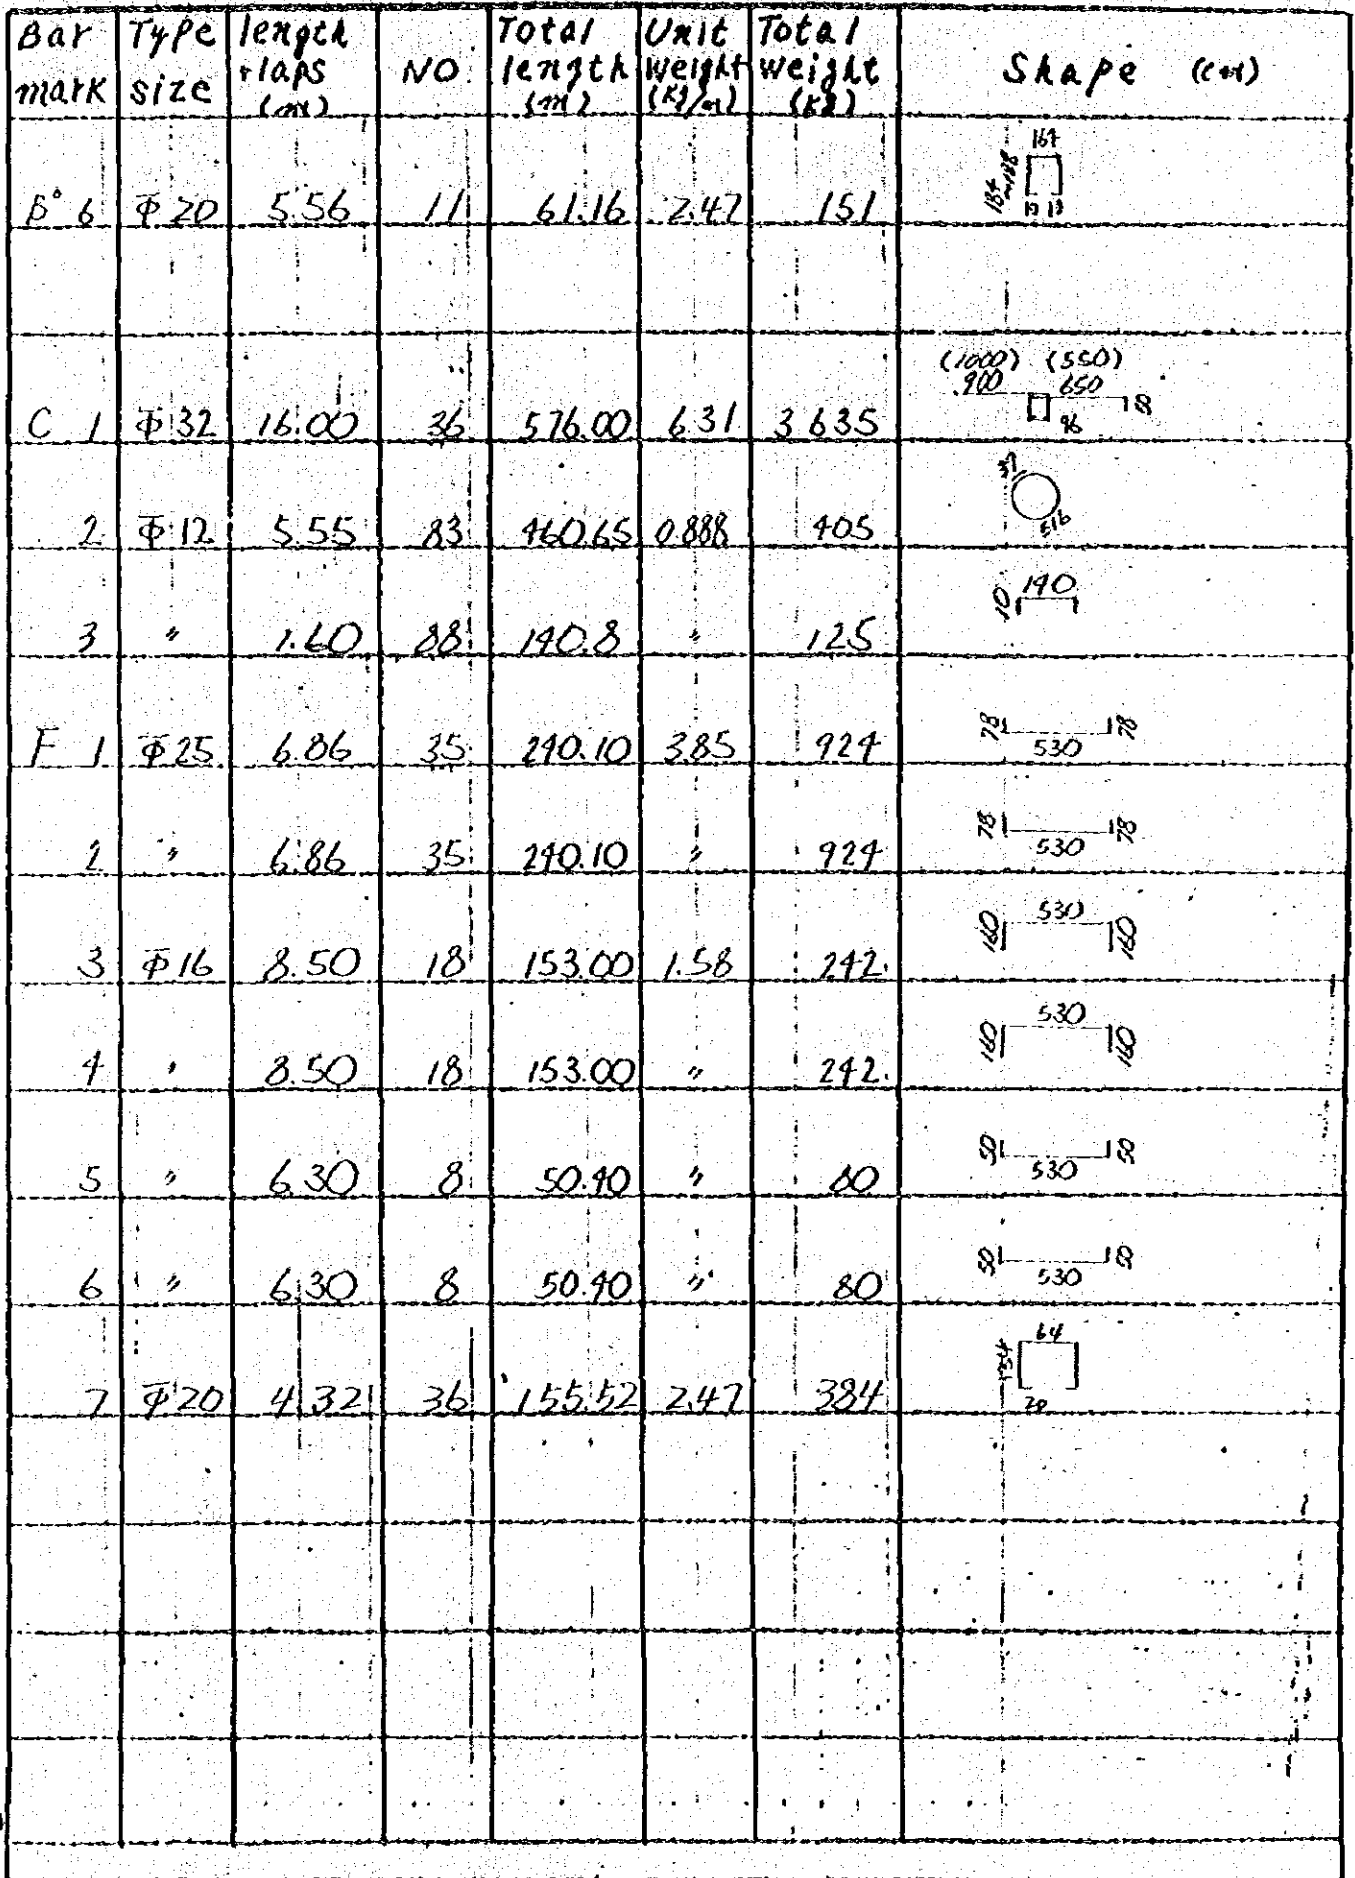 Bar mark Type size length +laps (m) NO. Total length (m) Unit Weight (Kg/m) Total weight (kg) Shape (cm)
B° 6 Φ20 5.56 11 61.16 2.47 151 167 184~188
C 1 Φ32 16.00 36 576.00 6.31 3635 (1000) (550) 900 650 50 96
2 Φ12 5.55 83 460.65 0.888 405 37 516
3 〃 1.60 88 140.8 〃 125 10 140
F 1 Φ25 6.86 35 240.10 3.85 924 78 530 78
2 〃 6.86 35 240.10 〃 924 78 530 78
3 Φ16 8.50 18 153.00 1.58 242 160 530 160
4 〃 8.50 18 153.00 〃 242 160 530 160
5 〃 6.30 8 50.40 〃 80 50 530 50
6 〃 6.30 8 50.40 〃 80 50 530 50
7 Φ20 4.32 36 155.52 2.47 384 64 20